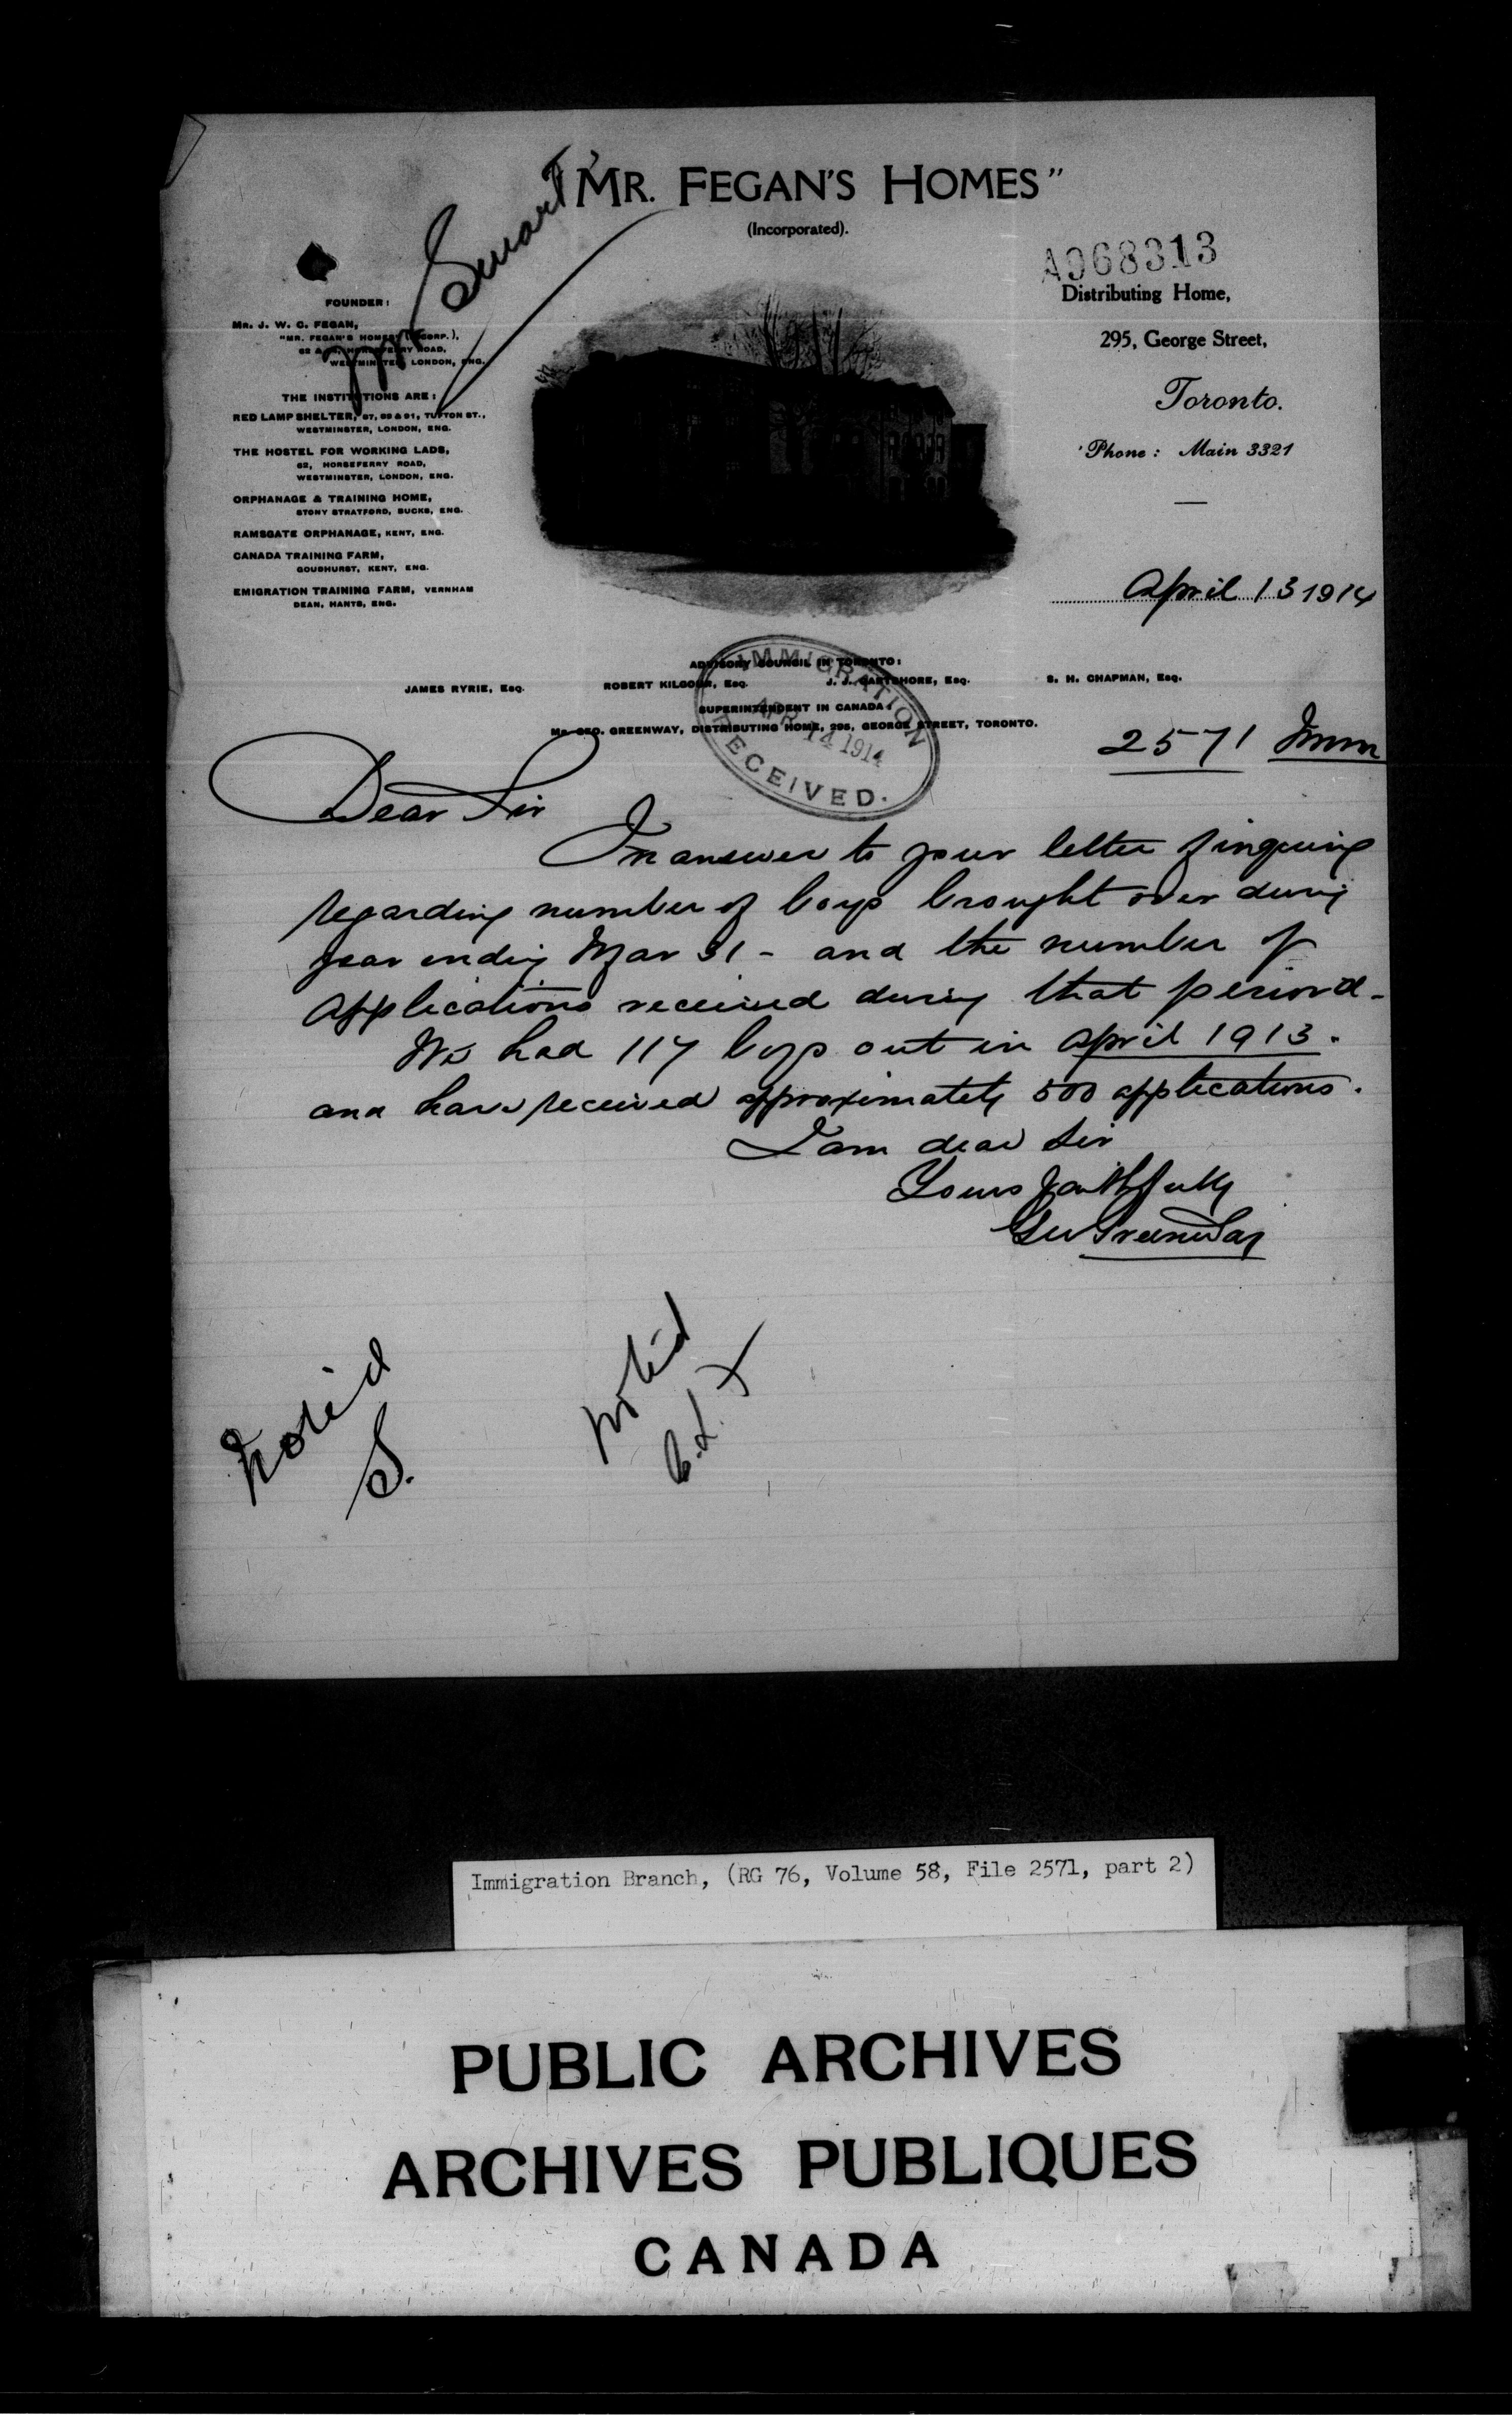 Mr Smart
"MR. FEGAN'S HOMES"
(Incorporated).
A968313
Distributing Home,
295, George Street,
Toronto.
'Phone: Main 3321
FOUNDER:
MR. J. W. C. FEGAN,
"MR. FEGAN'S HOMES" (INCORP.),
62 HORSEFERRY ROAD,
WESTMINSTER, LONDON, ENG.
THE INSTITUTIONS ARE:
RED LAMP SHELTER, 87, 89 & 91, TUFTON ST.,
WESTMINSTER, LONDON, ENG.
THE HOSTEL FOR WORKING LADS,
62, HORSEFERRY ROAD,
WESTMINSTER, LONDON, ENG.
ORPHANAGE & TRAINING HOME,
STONY STRATFORD, BUCKS, ENG.
RAMSGATE ORPHANAGE, KENT, ENG.
CANADA TRAINING FARM,
GOUDHURST, KENT, ENG.
EMIGRATION TRAINING FARM, VERNHAM
DEAN, HANTS, ENG.
April 13 1914
ADVISORY COUNCIL IN TORONTO:
JAMES RYRIE, Esq. ROBERT KILGOUR, Esq. J. J. GARTSHORE, Esq. S. H. CHAPMAN, Esq.
SUPERINTENDENT IN CANADA:
MR. GEO. GREENWAY, DISTRIBUTING HOME, 295, GEORGE STREET, TORONTO.
IMMIGRATION
APR 14 1914
RECEIVED.
2571 Imm
Dear Sir
In answer to your letter of inquiring
regarding number of boys brought over during
year ending Mar 31 - and the number of
applications received during that period -
We had 117 boys out in April 1913.
and have received approximately 500 applications.
I am dear Sir
Yours faithfully
Geo Greenway
Noted
S.
Noted
Immigration Branch, (RG 76, Volume 58, File 2571, part 2)
PUBLIC ARCHIVES
ARCHIVES PUBLIQUES
CANADA